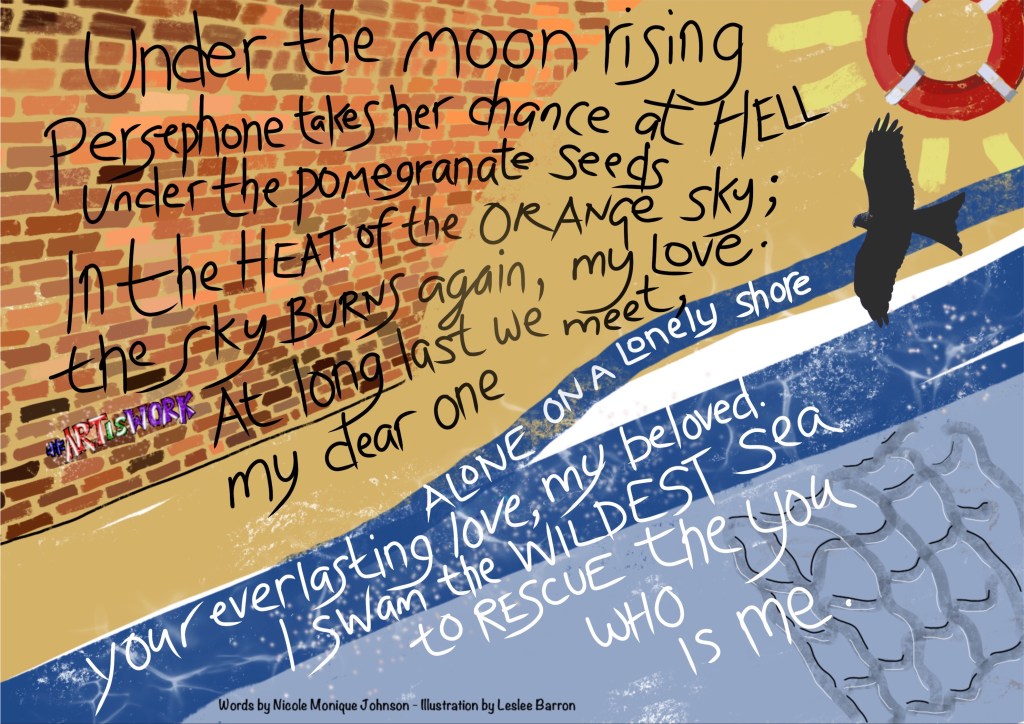 Under the moon rising
Persephone takes her chance at HELL
under the pomegranate seeds
In the HEAT of the ORANGe sky;
the sky BURNS again, my Love.
At long last we meet,
my dear one
ALONE ON A Lonely shore
your everlasting love, my beloved.
I swam the WILDEST Sea
to RESCUE the you
WHO
is me.
theARTisWORK
Words by Nicole Monique Johnson - Illustration by Leslee Barron